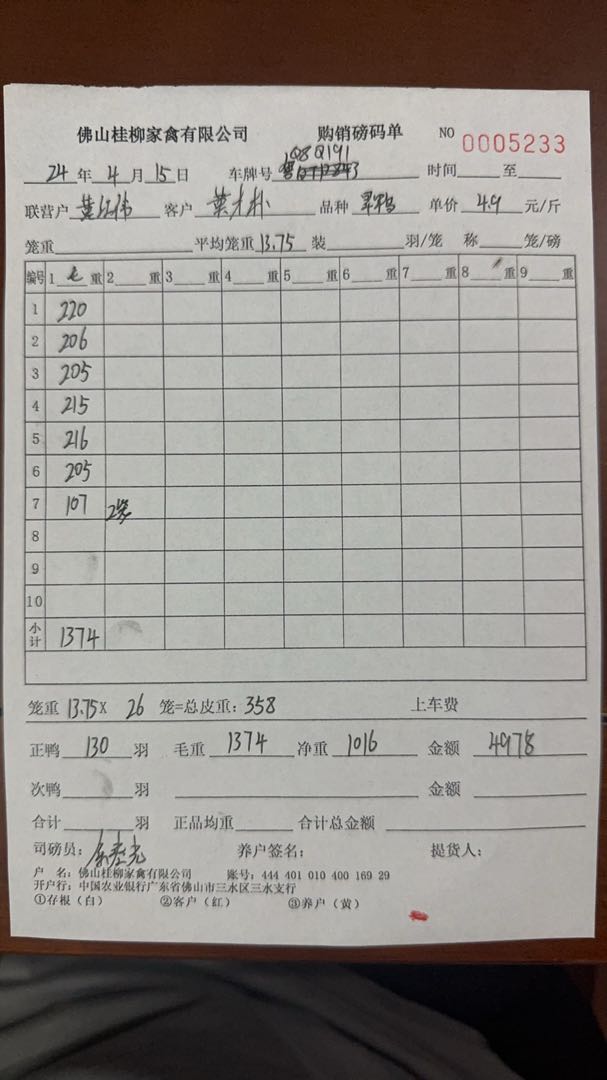 佛山桂柳家禽有限公司 购销磅码单 NO 0005233
Q8Q191
24 年 4 月 15 日 车牌号 时间 至
联营户 客户 叶才朴 品种 单价 4.9 元/斤
笼重 平均笼重 13.75 装 羽/笼 称 笼/磅
编号 1 毛 重 2 重 3 重 4 重 5 重 6 重 7 重 8 重 9 重
1 220
2 206
3 205
4 215
5 216
6 205
7 107 2笼
8
9
10
小计 1374
笼重 13.75 X 26 笼=总皮重: 358 上车费
正鸭 130 羽 毛重 1374 净重 1016 金额 4978
次鸭 羽 金额
合计 羽 正品均重 合计总金额
司磅员: 养户签名: 提货人:
户 名: 佛山桂柳家禽有限公司 账号: 444 401 010 400 169 29
开户行: 中国农业银行广东省佛山市三水区三水支行
①存根（白） ②客户（红） ③养户（黄）